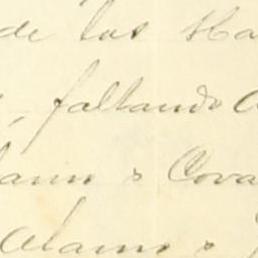 de las Ha
, faltando A
lamo & Cova
Alamo &